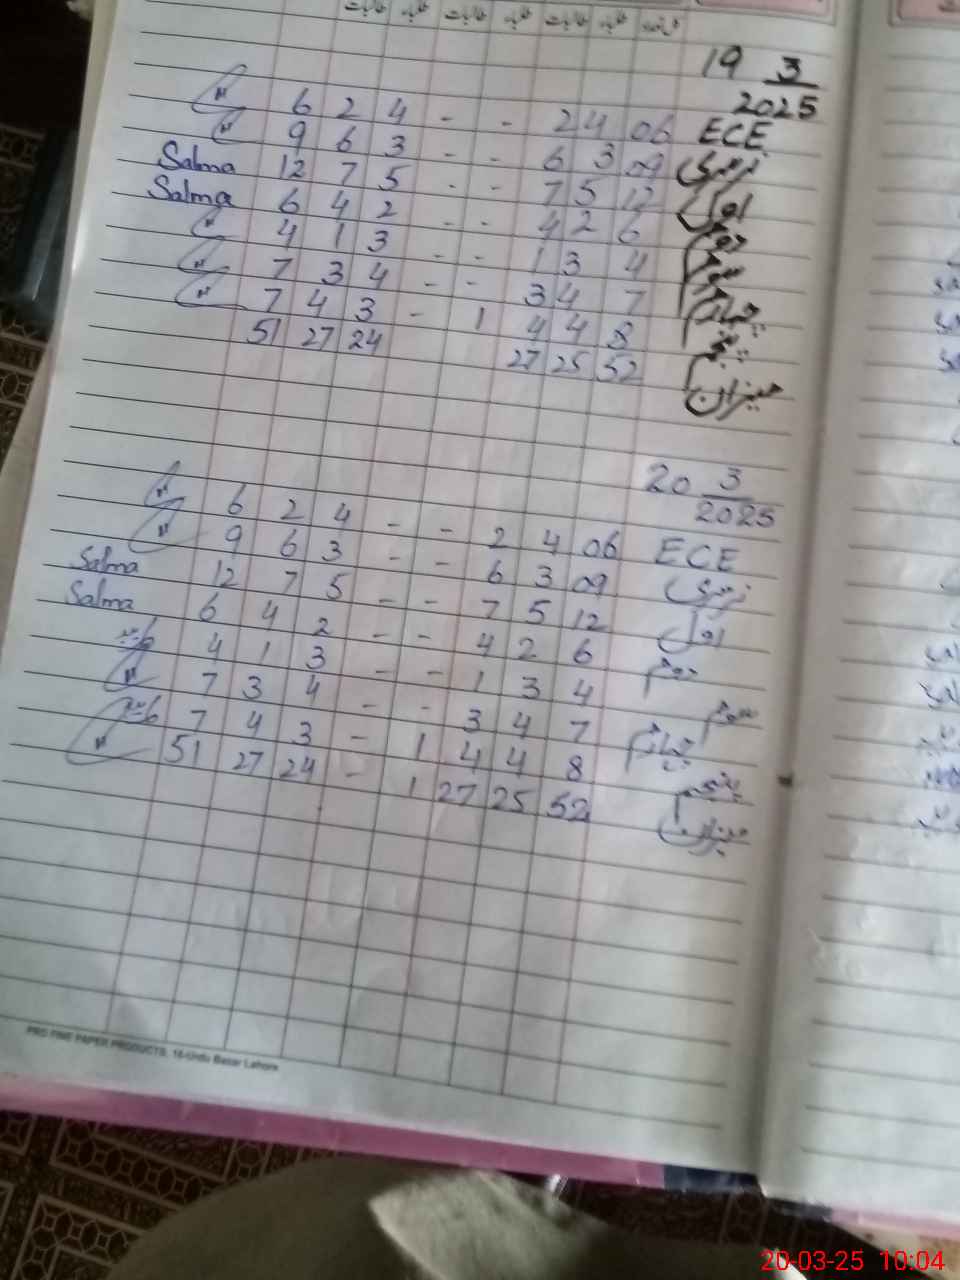 طالبات طلباء طالبات طلباء طالبات طلباء کل تعداد
19 3
2025
ECE 06 4 2 - - 4 2 6
نرسری 09 3 6 - - 3 6 9
اول 12 5 7 - - 5 7 12 Salma
دوم 6 2 4 - - 2 4 6 Salma
سوم 4 3 1 - - 3 1 4
چہارم 7 4 3 - - 4 3 7
پنجم 8 4 4 1 - 3 4 7
میزان 52 25 27 24 27 51
20 3
2025
ECE 06 4 2 - - 4 2 6
نرسری 09 3 6 - - 3 6 9
اول 12 5 7 - - 5 7 12 Salma
دوم 6 2 4 - - 2 4 6 Salma
سوم 4 3 1 - - 3 1 4
چہارم 7 4 3 - - 4 3 7
پنجم 8 4 4 1 - 3 4 7
میزان 52 25 27 1 - 24 27 51
PRO FINE PAPER PRODUCTS, 16-Urdu Bazar Lahore
20-03-25 10:04